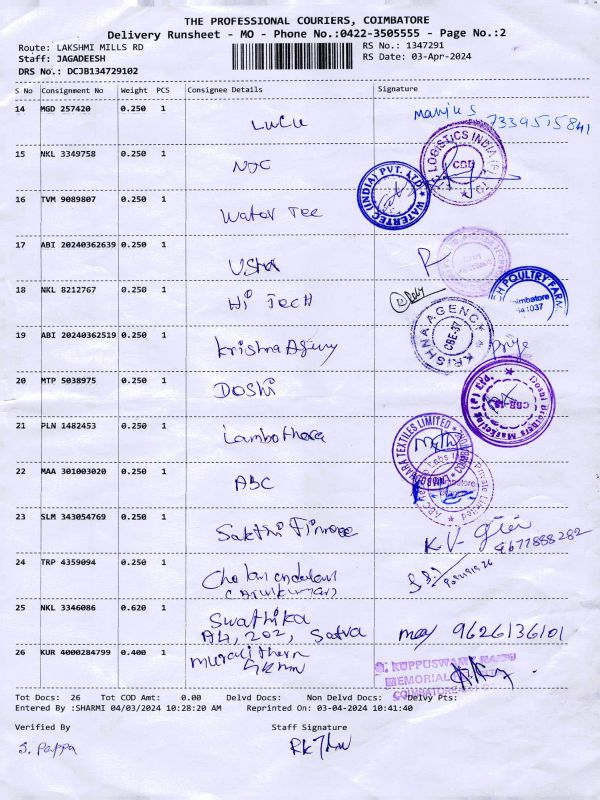 THE PROFESSIONAL COURIERS, COIMBATORE
Delivery Runsheet - MO - Phone No.:0422-3505555 - Page No.:2
Route: LAKSHMI MILLS RD
RS No.: 1347291
Staff: JAGADEESH
RS Date: 03-Apr-2024
DRS No.: DCJB134729102
S No Consignment No Weight PCS Consignee Details Signature
14 MGD 257420 0.250 1
LuLu
7339515841
15 NKL 3349758 0.250 1
NJC
LOGISTICS INDIA (P) CBE
16 TVM 9089807 0.250 1
Water Tee
WATERTEC (INDIA) PVT. LTD.
17 ABI 20240362639 0.250 1
USHA
18 NKL 8212767 0.250 1
Hi Tech
H POULTRY FARM
Coimbatore
641037
19 ABI 20240362519 0.250 1
Krishna Agency
KRISHNA AGENCY CBE-37
20 MTP 5038975 0.250 1
DOSHI
Doshi Brothers Marketing (P) Ltd.
21 PLN 1482453 0.250 1
TEXTILES LIMITED
22 MAA 301003020 0.250 1
ABC
ABC Labs Private Limited
23 SLM 343054769 0.250 1
Sakthi Finance
K.V. Giri
9677888282
24 TRP 4359094 0.250 1
25 NKL 3346086 0.620 1
Swathika
A4, 202, Satva
9626136101
26 KUR 4000284799 0.400 1
G. KUPPUSWAMY NAIDU
MEMORIAL
COIMBATORE
Tot Docs: 26 Tot COD Amt: 0.00 Delvd Docs: Non Delvd Docs: Delvy Pts:
Entered By :SHARMI 04/03/2024 10:28:20 AM Reprinted On: 03-04-2024 10:41:40
Verified By Staff Signature
S. Pappa